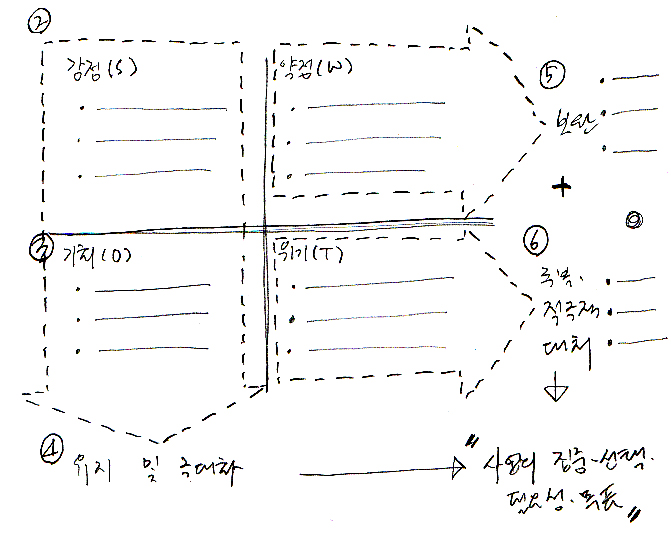 ②
강점(S)
약점(W)
⑤
보완
+
③
기회(O)
위기(T)
⑥
극복·
적극적
대처
④
유지 및 극대화
"사업의 집중·선택·
필요성·목표"